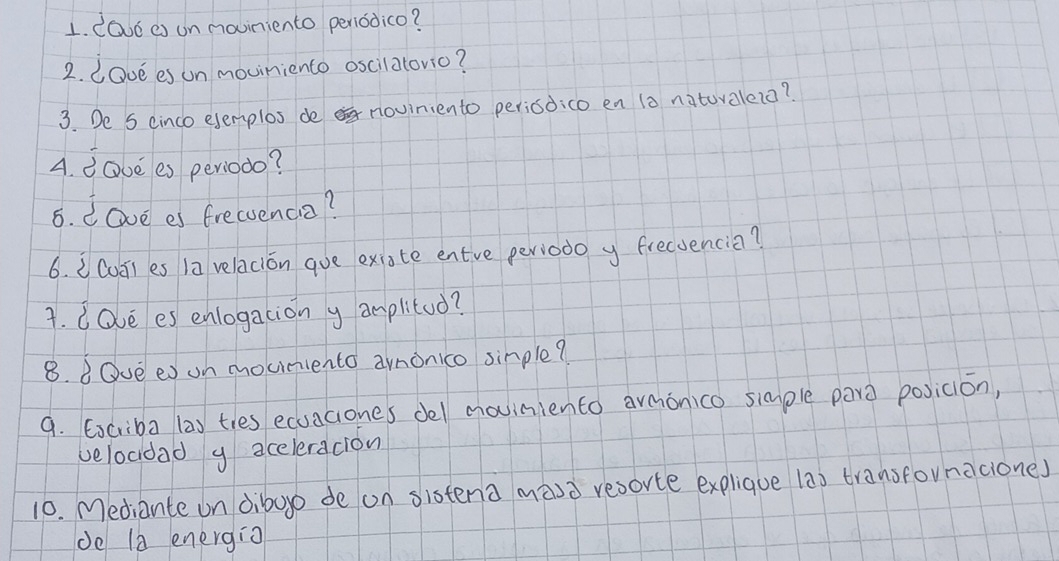 1. ¿Qué es un movimiento periódico?
2. ¿Qué es un movimiento oscilatorio?
3. De 5 cinco ejemplos de movimiento periódico en la naturaleza?
4. ¿Qué es periodo?
5. ¿Qué es frecuencia?
6. ¿Cuál es la relación que existe entre periodo y frecuencia?
7. ¿Qué es enlogación y amplitud?
8. ¿Qué es un movimiento armónico simple?
9. Escriba las tres ecuaciones del movimiento armónico simple para posición,
velocidad y aceleración
10. Mediante un dibujo de un sistema masa resorte explique las transformaciones
de la energía